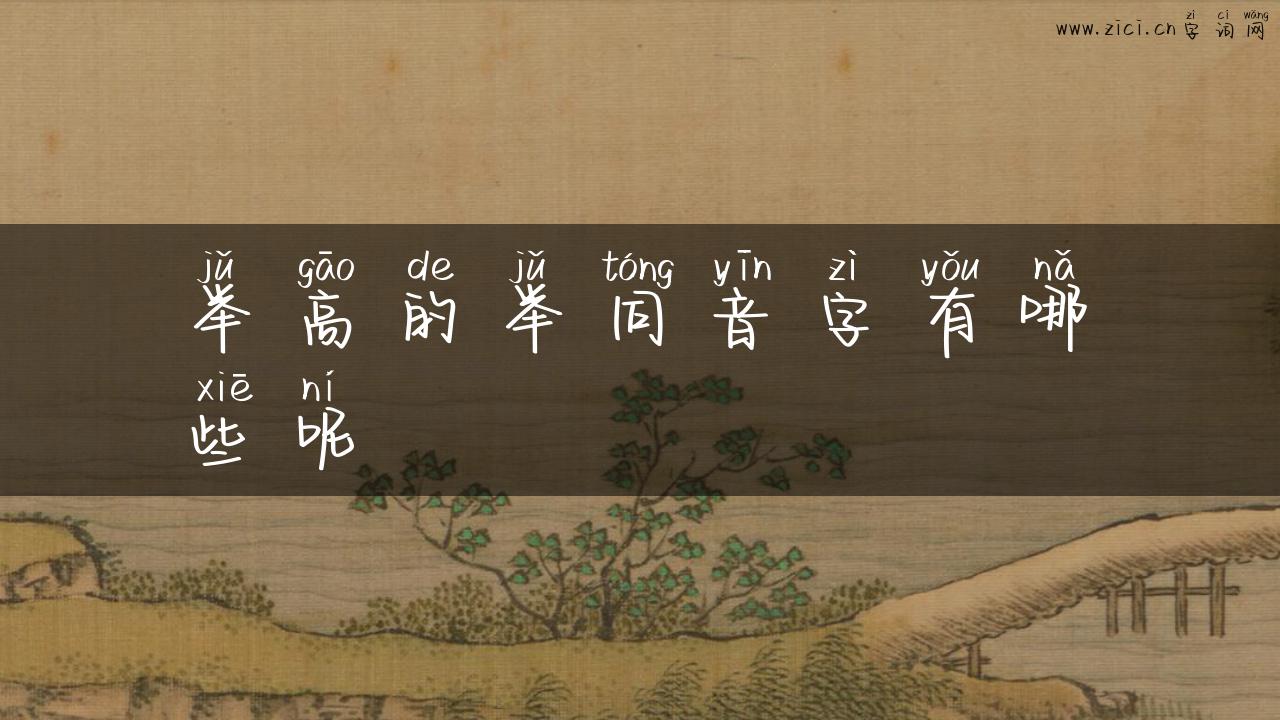 zì cí wǎng
www.zici.cn 字词网
jǔ gāo de jǔ tóng yīn zì yǒu nǎ
举高的举同音字有哪
xiē ní
些呢